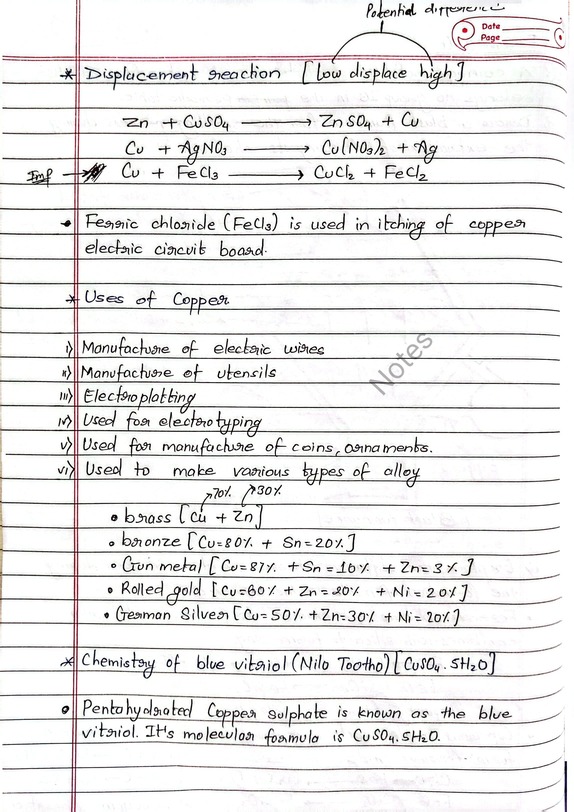 Potential difference
Date
Page
* Displacement reaction [low displace high]
Zn + CuSO4 → ZnSO4 + Cu
Cu + AgNO3 → Cu(NO3)2 + Ag
Imp → Cu + FeCl3 → CuCl2 + FeCl2
• Ferric chloride (FeCl3) is used in itching of copper
electric circuit board.
* Uses of Copper
i) Manufacture of electric wires
ii) Manufacture of utensils
iii) Electroplotting
iv) Used for electrotyping
v) Used for manufacture of coins, ornaments.
vi) Used to make various types of alloy
70% 30%
• brass [Cu + Zn]
• bronze [Cu=80% + Sn=20%]
• Gun metal [Cu=87% + Sn=10% + Zn=3%]
• Rolled gold [Cu=60% + Zn=20% + Ni=20%]
• German Silver [Cu=50% + Zn=30% + Ni=20%]
* Chemistry of blue vitriol (Nilo Tootho) [CuSO4.5H2O]
• Pentahydrated Copper sulphate is known as the blue
vitriol. It's molecular formula is CuSO4.5H2O.
Notes